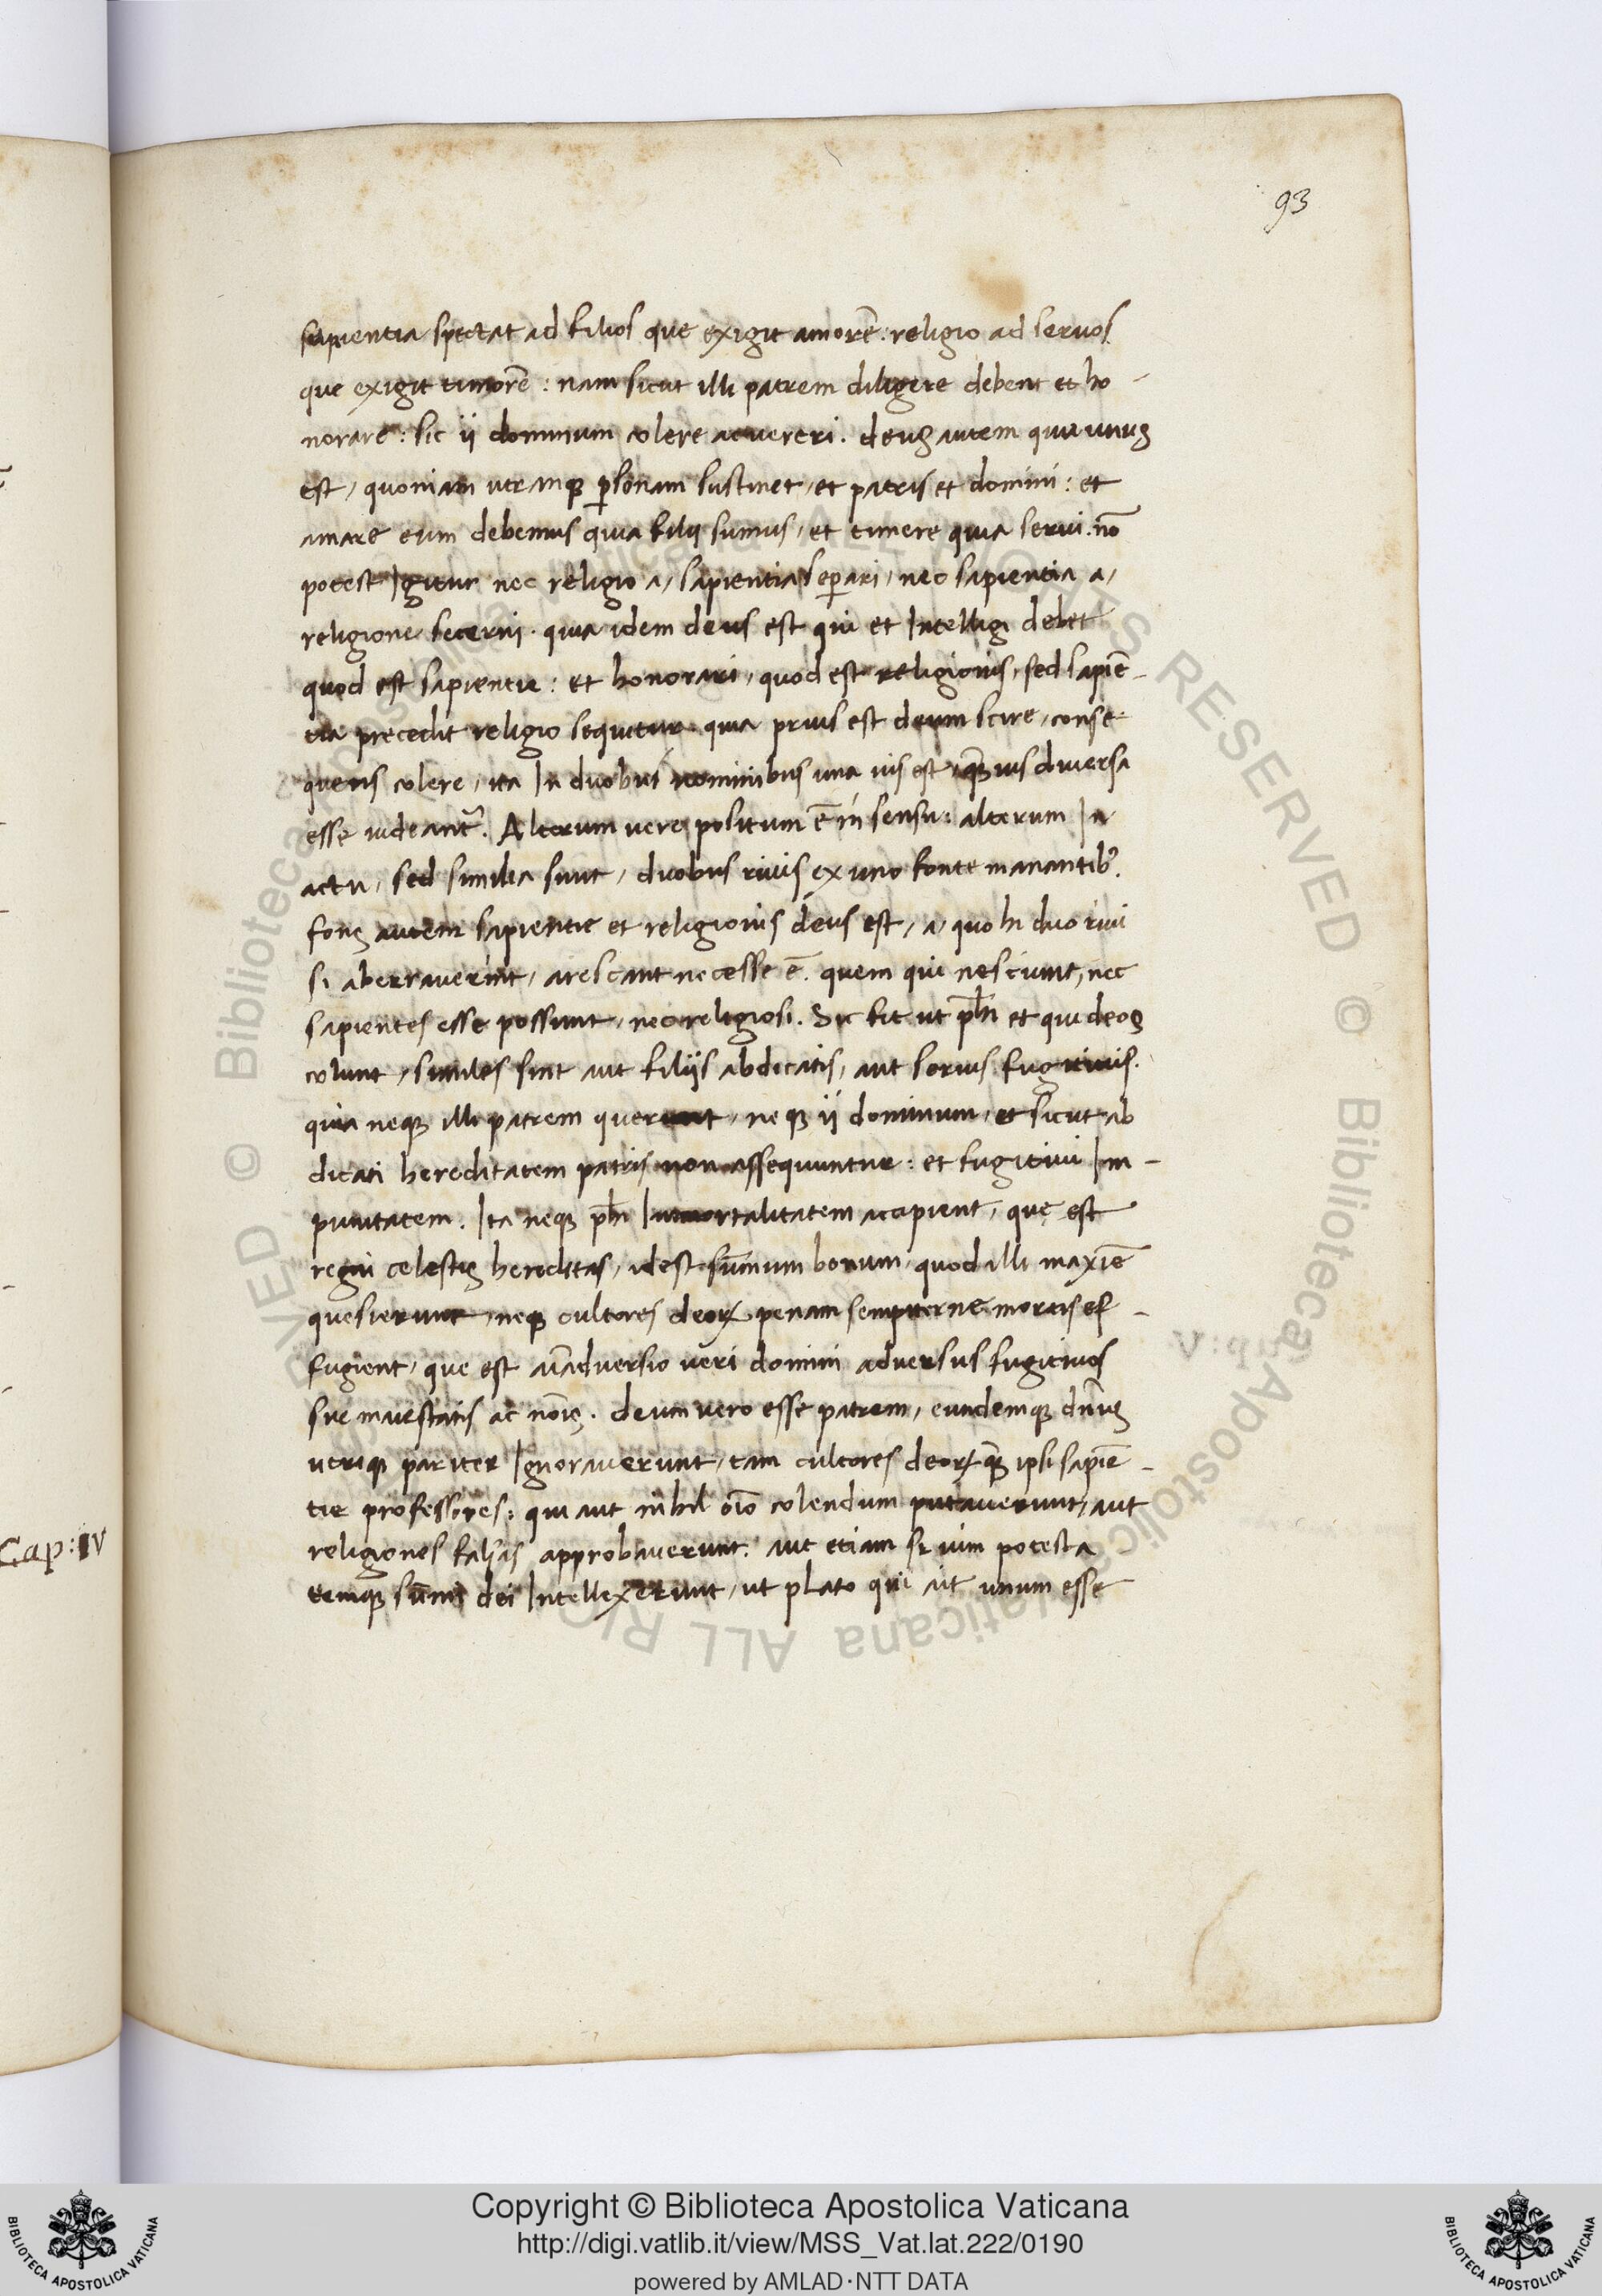 93
sapientia spectat ad filios que exigit amorē. religio ad seruos
que exigit timorē : nam sicut illi patrem diligere debent et ho-
norare : sic ij dominum colere ac uereri. deus autem qui unus
est, quoniam utramqꝫ ꝑsonam sustinet, et patris et domini : et
amare eum debemus quia filij sumus, et timere quia serui. nō
potest Igitur nec religio a, sapientia seꝑari, nec sapientia a,
religione secerni. quia idem deus est qui et Intelligi debet
quod est sapientie : et honorari, quod est religionis, sed sapiē-
tia precedit religio sequitur. quia prius est deum scire, conse
quens colere, ita In duobus nominibus una uis est, q̄uis diuersa
esse uideant᷑. Alterum uero positum ē in sensu : alterum In
actu, sed similia sunt, duobus riuis ex uno fonte manantibꝰ.
fons autem sapientie et religionis deus est, a, quo hi duo riui
si aberrauerint, arescant necesse ē. quem qui nesciunt, nec
sapientes esse possunt, nec religiosi. Sic fit ut ph̄i et qui deos
colunt, similes sint aut filijs abdicatis, aut seruis fugitiuis.
quia neqꝫ illi patrem querunt, neqꝫ ij dominum, et sicut ab
dicati hereditatem patris non assequuntur : et fugitiui Im-
punitatem. Ita neqꝫ ph̄i Immortalitatem accipient, que est
regni celestis hereditas, idest sūmum bonum, quod illi maxīe
quesierunt, neqꝫ cultores deoꝝ penam sempiterne mortis ef-
fugient, que est aīaduersio ueri domini aduersus fugitiuos
sue maiestatis ac nōis. deum uero esse patrem, eundemqꝫ dn̄us
utriqꝫ pariter Ignorauerunt, tam cultores deoꝝ q̄ ipsi sapiē-
tie professores : qui aut nihil oīo colendum putauerunt, aut
religiones falsas approbauerunt. aut etiam si uim potesta
temqꝫ sūmi dei Intellexerunt, ut plato qui ait unum esse
Cap: IV
Copyright © Biblioteca Apostolica Vaticana
http://digi.vatlib.it/view/MSS_Vat.lat.222/0190
powered by AMLAD·NTT DATA
BIBLIOTECA APOSTOLICA VATICANA
BIBLIOTECA APOSTOLICA VATICANA